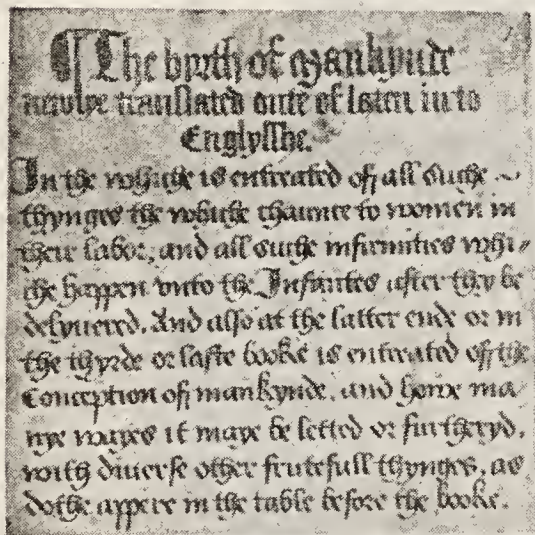 The byrth of mankynde
newlye translated oute of laten in to
Englysshe.
In the whiche is entreated off all suche
thynges the whiche chaunce to women in
their labor, and all suche infirmities whi,
che happen vnto the Infantes after they be
delyuered. And also at the latter ende or in
the thyrde or laste booke is entreated off the
Conception off mankynde, and howe ma
nye wayes it maye be letted or furtheryd,
with diuerse other frutefull thynges, as
dothe appere in the table before the booke.